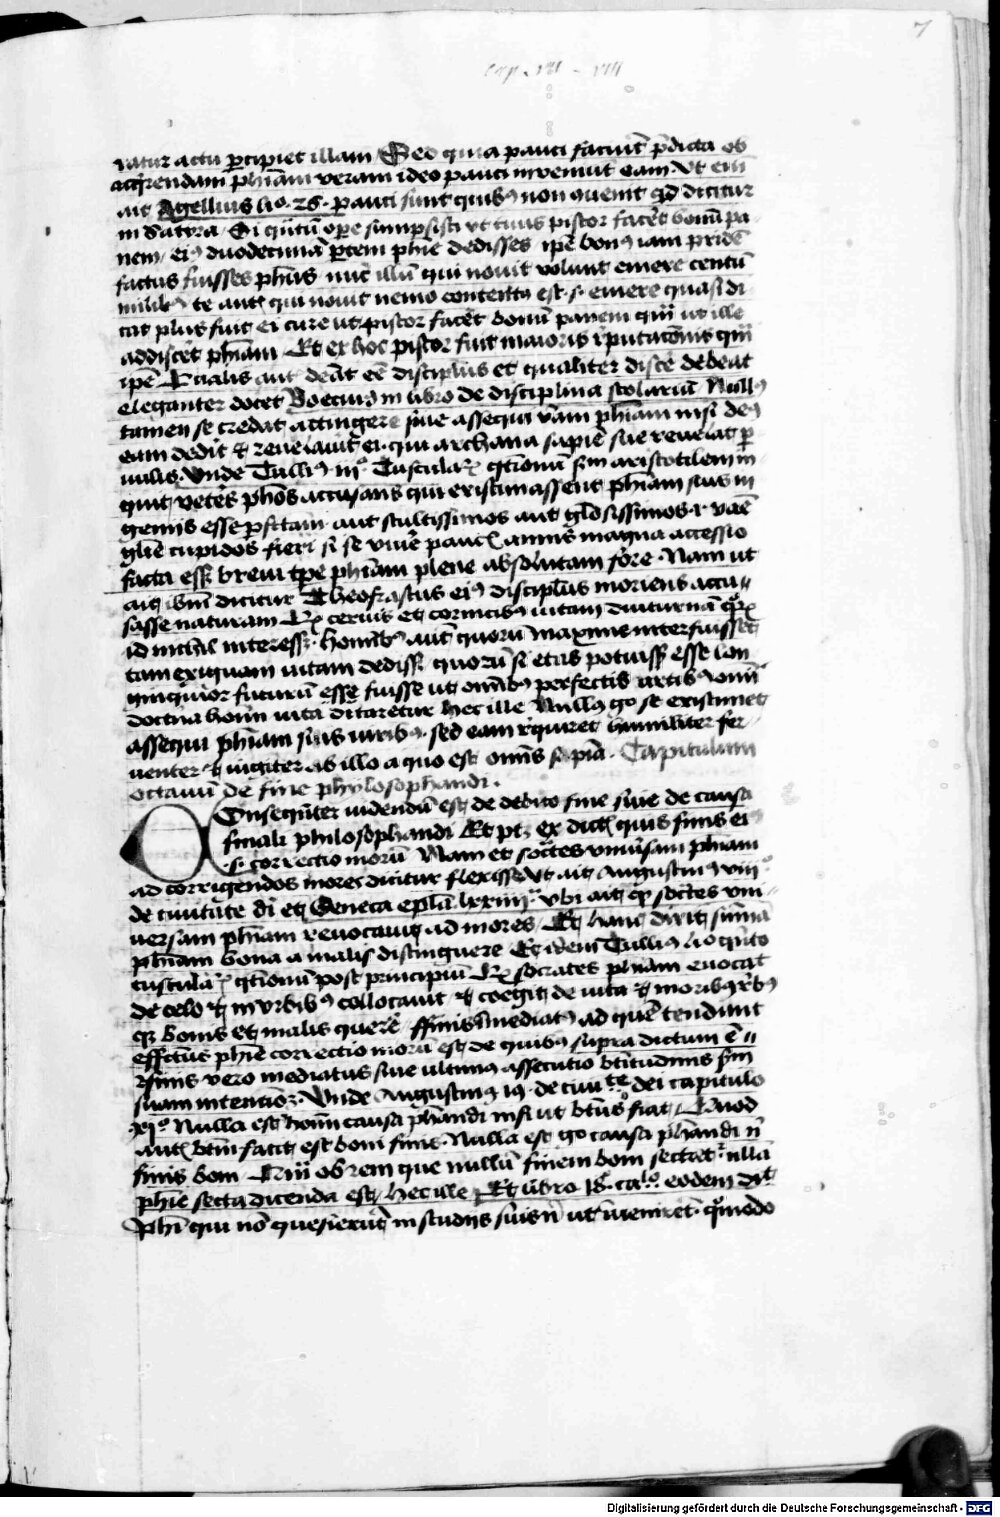 7
Cap. VII - VIII
ratur actu percipiet illam Sed quia pauci faciunt pdicta ob
acqrendam phiam veram ideo pauci inveniunt eam Ut eni
ait Agellius lio. 26. pauci sunt quibus non conuenit qd dicitur
in Satyra Si qntu ope sumpsisti ut tuus pistor facet bonu pa
nem eius duodecima ptem phie dedisses ipe bonus iam pride
factus fuisses phus nuc illu qui nouit volunt emere centu
milibus te aute qui nouit nemo contentus est .s. emere quasi di
cat plus fuit ei cure ut pistor facet bonu panem qm ut ille
addiscet phiam Et ex hoc pistor fuit maioris rputationis qm
ipe Qualis aut deat ee disciplus et qualiter disce debeat
eleganter docet Boecius in libro de disciplina scolariu Nullus
tamen se credat attingere siue assequi veram phiam nisi deus
eam dedit et reuelauit ei qui archana sapie sue reuelat p
uulis. Unde Tullius iijo Tusculaz qtionu sm aristotilem in
quit vetes phos accusans qui existimassent phiam suis in
geniis esse pfectam aut stultissimos aut gliosissimos .i. vae
glie cupidos fieri si se viue paucis annis magna accessio
facta esset breui tpe phiam plene absolutam fore. Nam ut
ait ibm dicitur Theofrastus eius disciplus moriens accu
sasse naturam Qz ceruis et cornicibus uitam diuturna quoz
id nichil interesset. hominibus aut quoru maxime interfuisset
tam exiguam uitam dedisset quoru si etas potuisset esse lon
ginquior futuru esse fuisse ut omnibus perfectis artibus omi
doctrina hoim uita ditaretur hec ille Nullus go se existimet
assequi phiam suis uiribus. sed eam rquiret humiliter fer
uenter et iugiter ab illo a quo est omis sapia. Capitulum
octauu de fine phylosophandi.
Consequter uidendu est de debito fine siue de causa
finali philosophandi Et pt ex dictis quis finis eius
.s. correctio moru Nam et socrates uniuersam phiam
ad corrigendos mores dicitur flexisse ut ait Augustinus viijo
de ciuitate di et Seneca epla lxxiiij ubi ait qz socrates uni
uersam phiam reuocauit ad mores. Et hanc dixit summa
phiam bona a malis distinguere Et idem Tullius lio qnto
tusculaz qtionu post principiu Qz socrates phiam euocat
de celo et in urbibus collocauit et coegit de uita et moribus rebus
qz bonis et malis quere ffinis immediatus ad que tendunt
effectus phie correctio moru est de quibus supra dictum e
ffinis vero mediatus siue ultimus assecutio btitudinis sm
suam intentioz. Unde Augustinus 19. de ciuite dei capitulo
xjo Nulla est homi causa phandi nisi ut btus fiat Quod
aut btm facit est boni finis. Nulla est go causa phandi ni
finis boni Quam ob rem que nullu finem boni sectatr nulla
phie secta dicenda est hec ille Et libro 18. calo eodem dit
Phi qui no quesierut in studiis suis ni ut inueniret quomodo
Digitalisierung gefördert durch die Deutsche Forschungsgemeinschaft - DFG